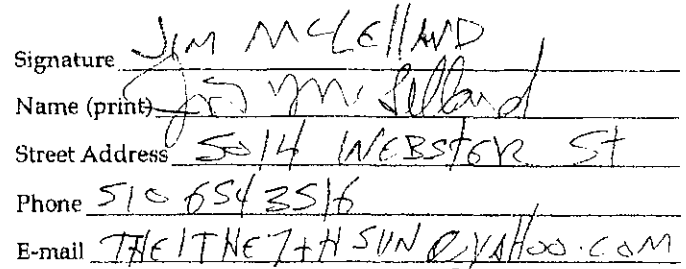 Signature JIM McLellAND
Name (print) Jim McLelland
Street Address 5014 WEBSTER St
Phone 510 654 3516
E-mail THE1THE7+HSUN@YAHOO.COM